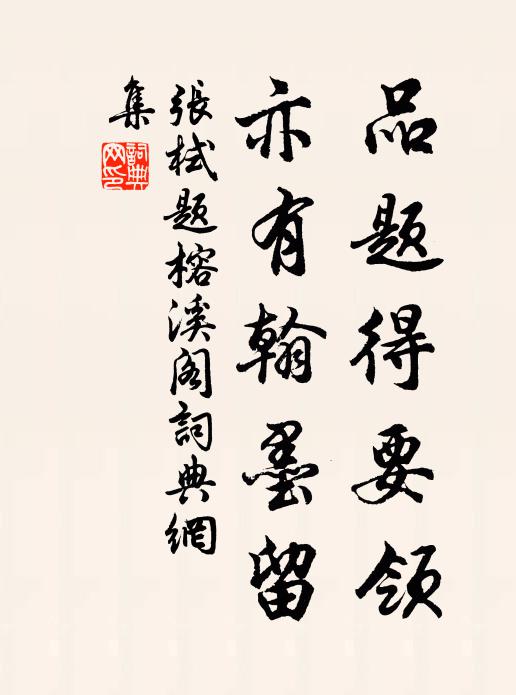 品题得要领
亦有翰墨留
張栻题榕溪阁詞典網
集
詞典
网印